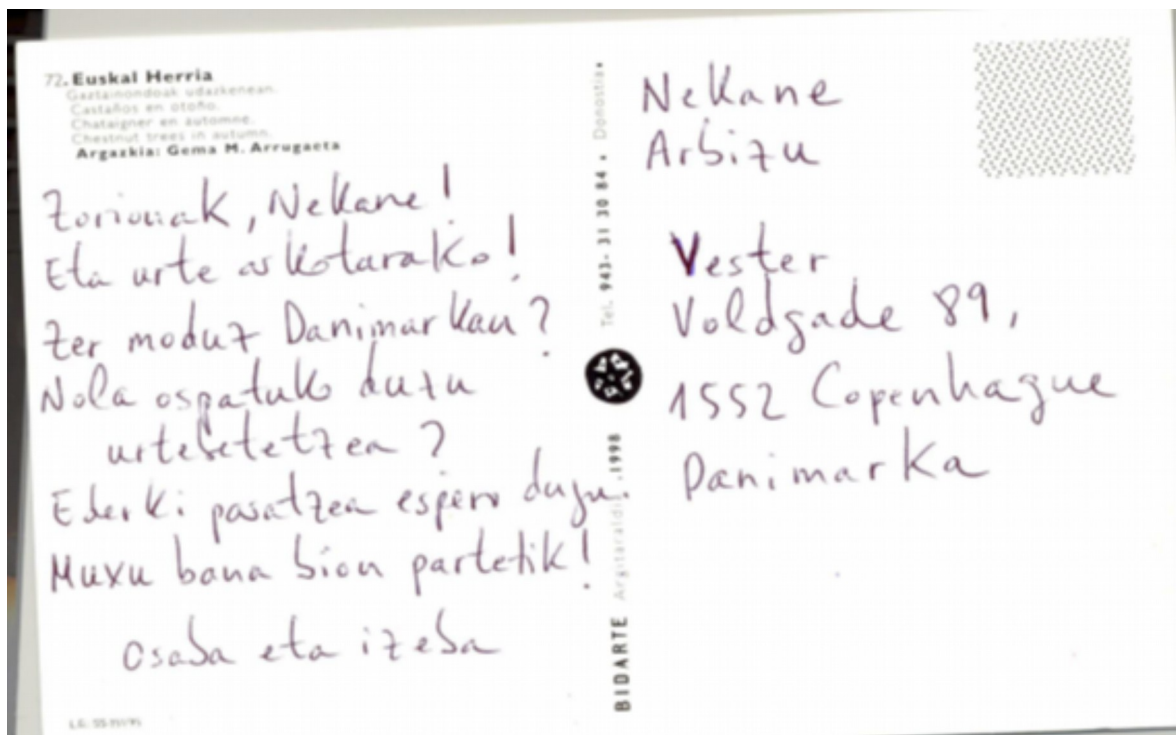 72. Euskal Herria
Gaztainondoak udazkenean.
Castaños en otoño.
Chataigner en automne.
Chestnut trees in autumn.
Argazkia: Gema M. Arrugaeta
Zorionak, Nekane!
Eta urte askotarako!
Zer moduz Danimarkan?
Nola ospatuko duzu
urtebetetzea?
Ederki pasatzea espero dugu.
Muxu bana bion partetik!
Osaba eta izeba
BIDARTE Argitaraldia, 1998
Tel. 943- 31 30 84 • Donostia•
Nekane
Arbizu
Vester
Voldgade 89,
1552 Copenhague
Danimarka